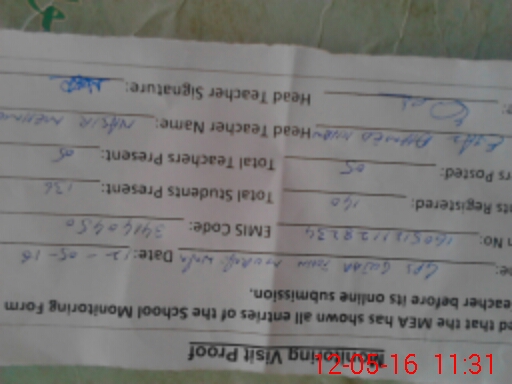 Monitoring Visit Proof
ed that the MEA has shown all entries of the School Monitoring Form
eacher before its online submission.
e: GPS Date: 12-05-16
n No: EMIS Code: 34140450
ts Registered: 140 Total Students Present: 136
rs Posted: 05 Total Teachers Present: 05
Head Teacher Name: NASIR
e: Head Teacher Signature:
12-05-16 11:31